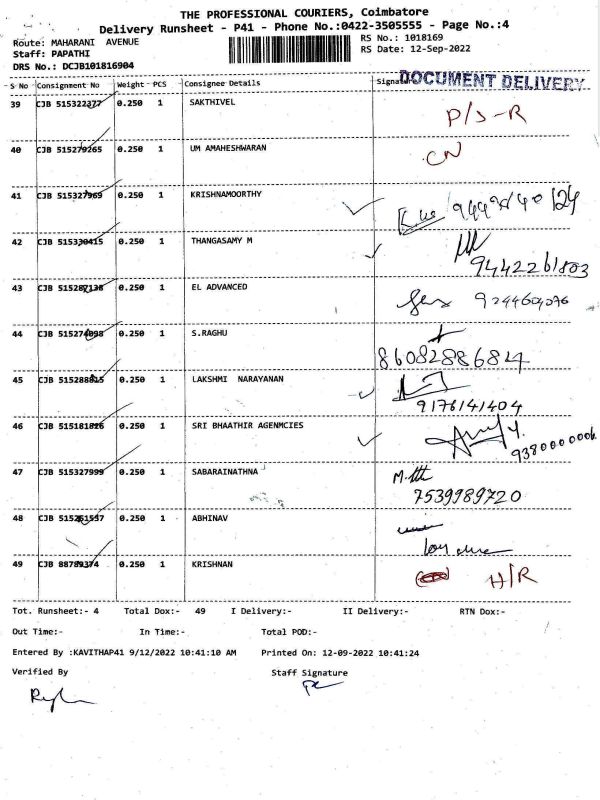 THE PROFESSIONAL COURIERS, Coimbatore
Delivery Runsheet - P41 - Phone No.:0422-3505555 - Page No.:4
Route: MAHARANI AVENUE RS No.: 1018169
Staff: PAPATHI RS Date: 12-Sep-2022
DRS No.: DCJB101816904
S No Consignment No Weight PCS Consignee Details Signature DOCUMENT DELIVERY
39 CJB 515322377 0.250 1 SAKTHIVEL
P/S-R
40 CJB 515279265 0.250 1 UM AMAHESHWARAN
CN
41 CJB 515327969 0.250 1 KRISHNAMOORTHY
42 CJB 515330415 0.250 1 THANGASAMY M
9442261803
43 CJB 515287138 0.250 1 EL ADVANCED
44 CJB 515274098 0.250 1 S.RAGHU
8608288684
45 CJB 515288815 0.250 1 LAKSHMI NARAYANAN
9176141404
46 CJB 515181826 0.250 1 SRI BHAATHIR AGENMCIES
47 CJB 515327999 0.250 1 SABARAINATHNA
7539989720
48 CJB 515261557 0.250 1 ABHINAV
49 CJB 88789374 0.250 1 KRISHNAN
H/R
Tot. Runsheet:- 4 Total Dox:- 49 I Delivery:- II Delivery:- RTN Dox:-
Out Time:- In Time:- Total POD:-
Entered By :KAVITHAP41 9/12/2022 10:41:10 AM Printed On: 12-09-2022 10:41:24
Verified By Staff Signature